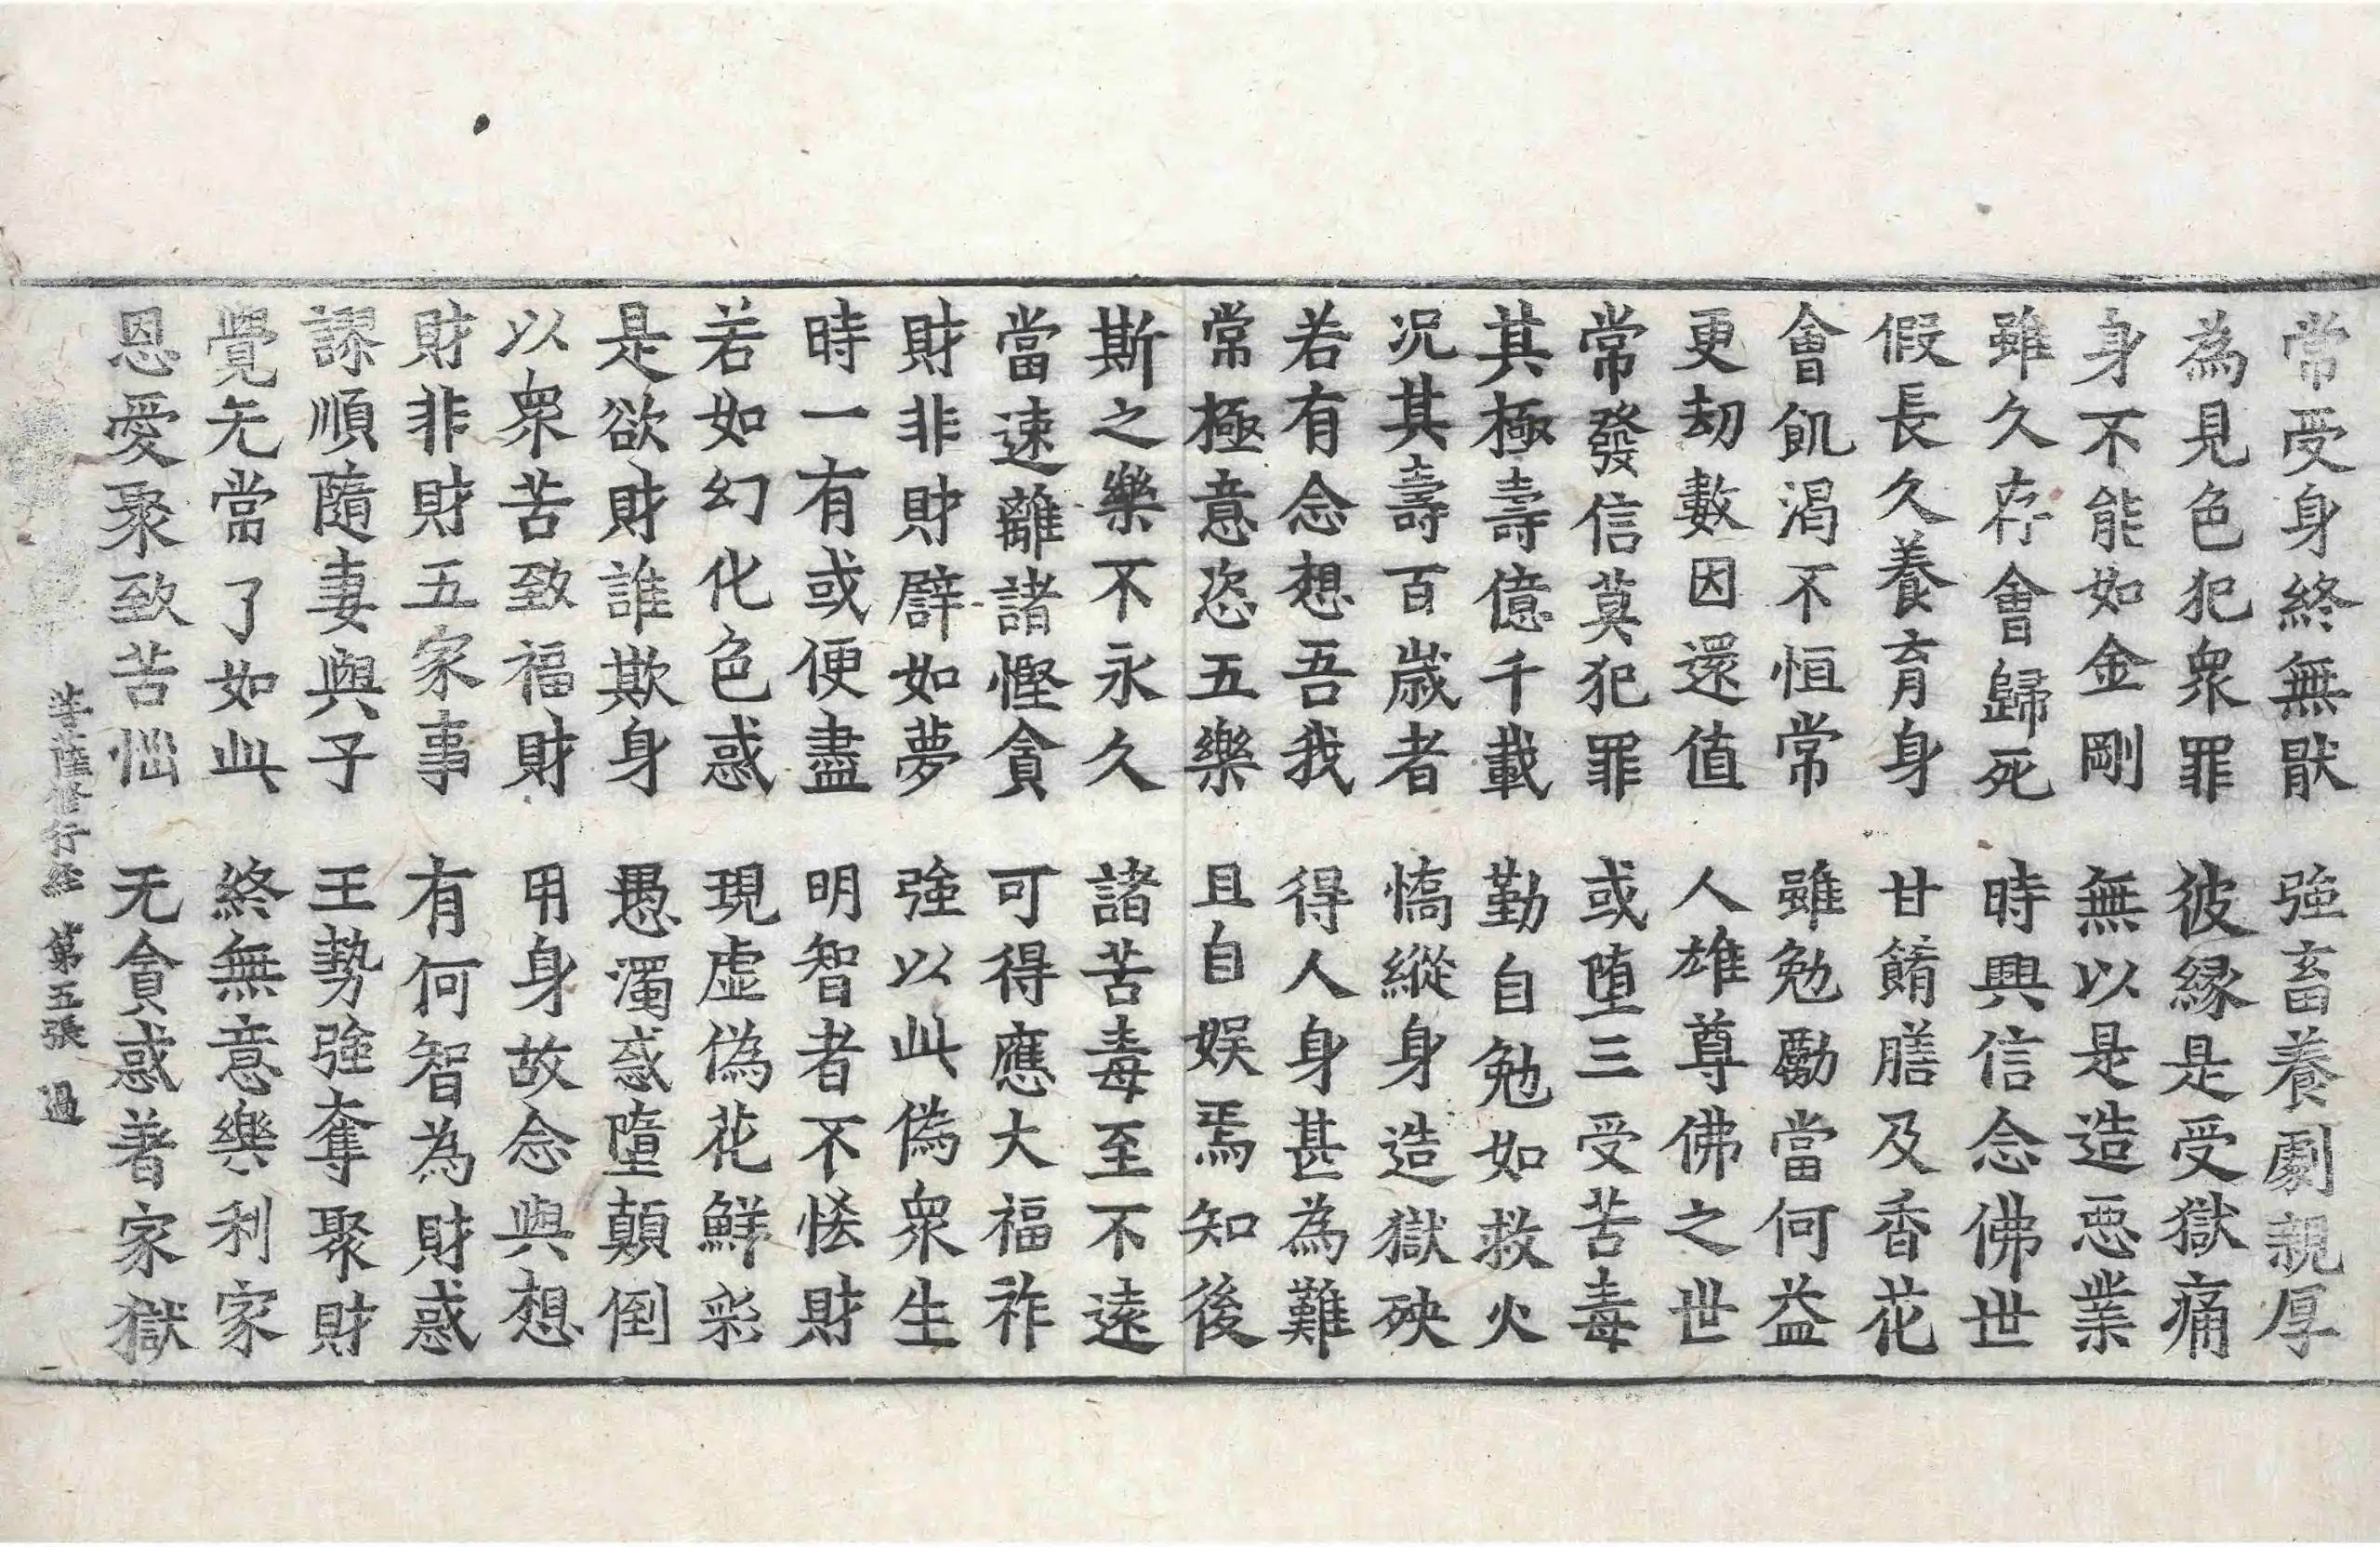 常受身終無猒　強畜養劇親厚
為見色犯衆罪　彼緣是受獄痛
身不能如金剛　無以是造惡業
雖久存會歸死　時興信念佛世
假長久養育身　甘餚膳及香花
會飢渴不恒常　雖勉勵當何益
更劫數因還值　人雄尊佛之世
常發信莫犯罪　或墮三受苦毒
其極壽億千載　勤自勉如救火
況其壽百歲者　憍縱身造獄殃
若有念想吾我　得人身甚為難
常極意恣五樂　且自娛焉知後
斯之樂不永久　諸苦毒至不遠
當速離諸慳貪　可得應大福祚
財非財譬如夢　強以此偽衆生
時一有或便盡　明智者不悋財
若如幻化色惑　現虛偽花鮮彩
是欲財誰欺身　愚濁惑墮顛倒
以衆苦致福財　用身故念與想
財非財五家事　有何智為財惑
謬順隨妻與子　王勢強奪聚財
覺无常了如此　終無意樂利家
恩愛聚致苦惱　无貪惑著家獄
菩薩修行經　第五張　過